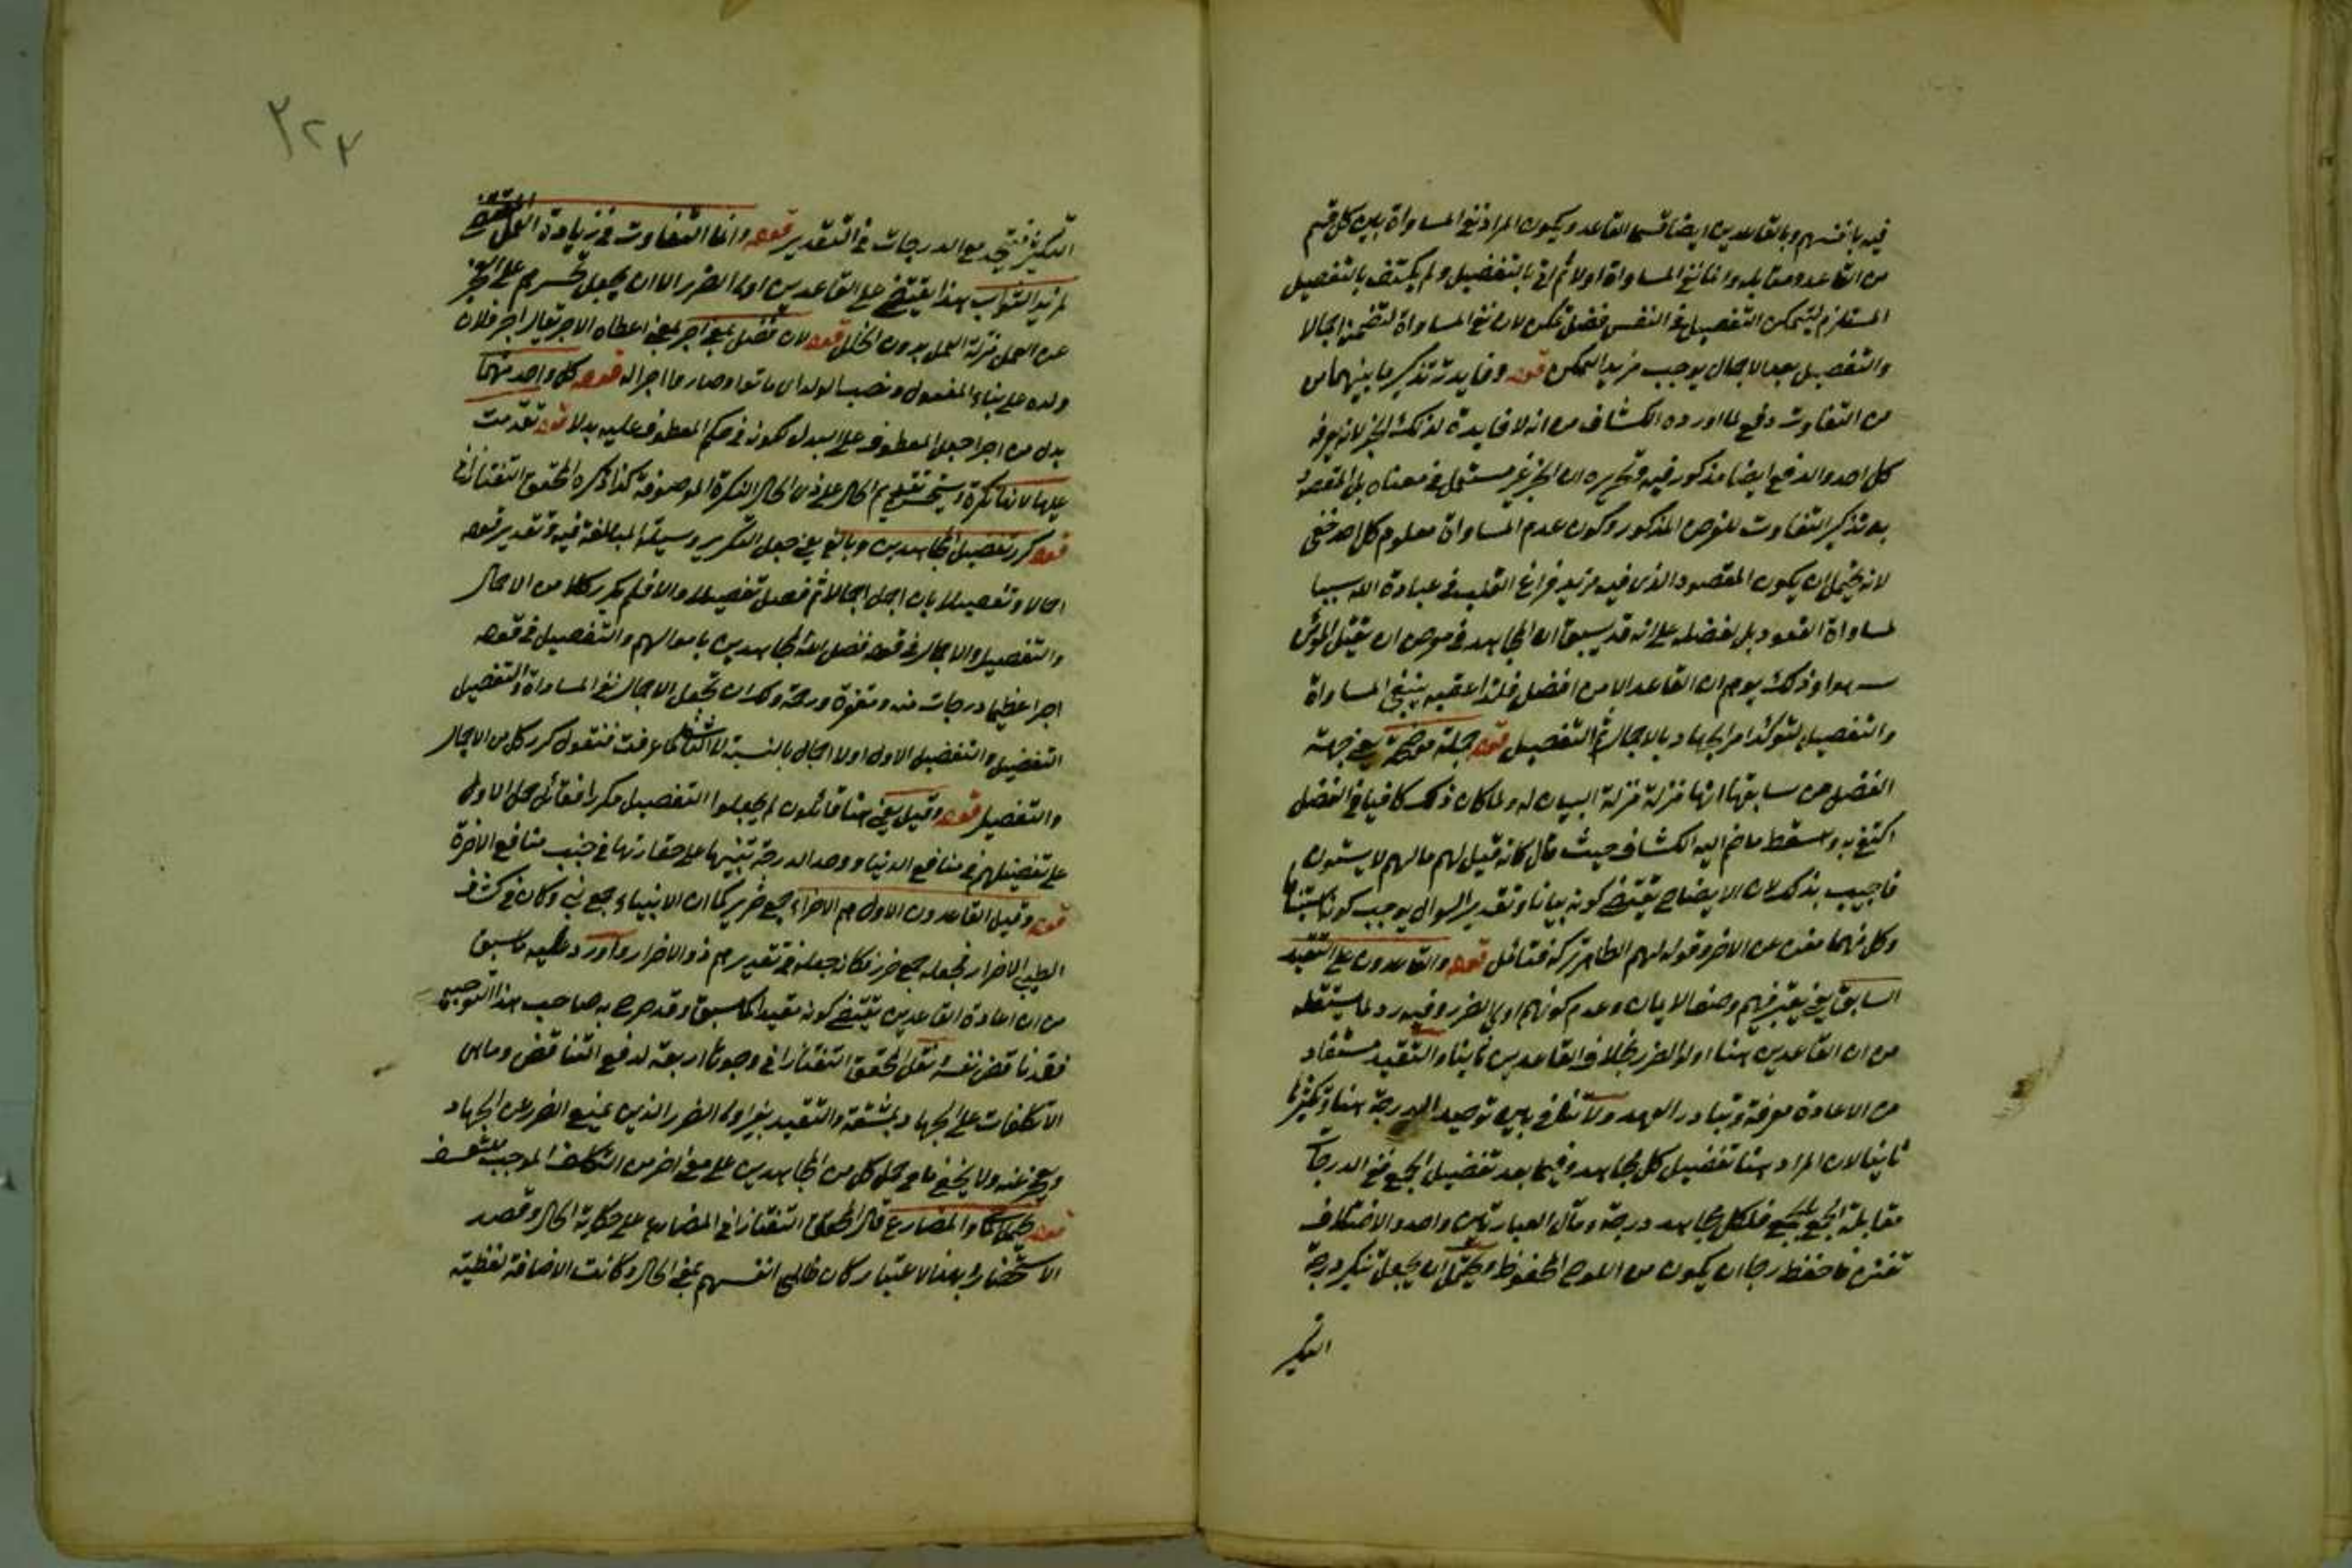 فيه بانفسهم وبالقاعدين ايضا قسما القاعد ويكون المراد نفي المساواة بين كل قسم
من القاعد ومقابله وانما نفي المساواة اولا ثم اتى بالتفضيل ولم يكتف بالتفضيل
المستلزم ليتمكن التفصيل في النفس فضل تمكن لان نفي المساواة لتضمن اجمالا
والتفصيل بعد الاجمال يوجب مزيد التمكن قوله وفايدته تذكير ما بينهما من
من التفاوت دفع لما اورده الكشاف من انه لا فايدة لذلك الخبر لانه يعرفه
كل احد والدفع ايضا مذكور فيه وتحريره ان الخبر غير مستعمل في معناه بل المقصود
به تذكير التفاوت للغرض المذكور وكون عدم المساواة معلوم كل احد خفي
لانه يحتمل ان يكون المقصود الذي فيه مزيد فراغ القلب في عبادة الله سببا
لمساواة القعود بل لفضله على انه قد سبق ان المجاهد في معرض ان يقتل المؤمن
سهوا وذلك يوهم ان القاعد الامن افضل فلذا عقبه بنفي المساواة
والتفصيل لتوكد امر الجهاد بالاجمال ثم التفصيل قوله جملة موضحة يعني جهة
الفصل عن سابقها انها منزلة منزلة البيان له ولما كان ذلك كافيا في الفصل
اكتفى به واسقط ما ضم اليه الكشاف حيث قال كانه قيل لهم مالهم لا يستوون
فاجيب بذلك لان الايضاح يقتضي كونه بيانا وتقدير السوال يوجب كونه استينافا
وكل منهما مغن عن الاخر وقوله لهم الظاهر تركه فتامل قوله والقاعدون على التقييد
السابق يعني يعتبر فيهم وصف الايمان وعدم كونهم اولي الضرر وفيه رد لما يستقله
من ان القاعدين هنا اولوا الضرر بخلاف القاعدين ثانيا والتقييد مستفاد
من الاعادة معرفة وتبادر العهد ولا تنافي بين توحيد الدرجة هنا وتكثيرها
ثانيا لان المراد هنا تفضيل كل مجاهد وفيما بعد تفضيل الجمع ففي الدرجات
مقابلة الجمع بالجمع فلكل مجاهد درجة ومآل العبارتين واحد والاختلاف
تفنن فاحفظ رجا ان يكون من اللوح المحفوظ ويحتمل ان يجعل تنكير درجة
التكثير
٢٢٣
التكثير فيتحد مع الدرجات في التقدير قوله وانما التفاوت في زيادة العمل المقتضي
لمزيد الثواب هذا يقتضي على القاعدين اولى الضرر الا ان يجعل تحسرهم على العجز
عن العمل منزلة العمل بدون الخلل قوله لان فضل بمعنى اجر بمعنى اعطاه الاجر يقال اجر فلان
ولده على بناء المفعول ونصب الولد اي ماتوا وصاروا اجرا له قوله كل واحد منها
بدل من اجرا جعل المعطوف على البدل لكونه في حكم المعطوف عليه بدلا قوله تقدمت
عليها لانها نكرة تقديم الحال على ذي الحال النكرة الموصوفة كذا ذكره المحقق التفتازاني
قوله كرر تفضيل المجاهدين وبالغ يعني جعل التكرير وسيلة المبالغة فيه وتقدير قوله
اجمالا وتفصيلا بان اجمل اجمالا ثم فصل تفصيلا والا فلم يكرر كلا من الاجمال
والتفصيل والاجمال في قوله فضل الله المجاهدين باموالهم والتفصيل في قوله
اجرا عظيما درجات منه ومغفرة ورحمة ولك ان تجعل الاجمال نفي المساواة والتفصيل
التفضيل والتفضيل الاول اولا اجمال بالنسبة الى الثاني كما عرفت فنقول كرر كل من الاجمال
والتفصيل قوله وقيل يعني هنا قائلون لم يجعلوا التفصيل مكررا فقائل حمل الاول
على تفضيلهم في منافع الدنيا ووحد الدرجة تنبيها على حقارتها في جنب منافع الاخرة
قوله وقيل القاعدون الاول هم الاضراء جمع ضرير كما ان الانبياء جمع نبي وكان في كشف
الطيبي الاضرار فجعله جمع ضرر فكانه جعله في تقدير هم ذوو الاضرار واورد عليه ما سبق
من ان اعادة القاعدين يقتضي كونه مقيدا كما سبق وقد صرح به صاحب هذا التوجيه
فقد ناقض نفسه نقل المحقق التفتازاني وجوها اربعة لدفع التناقض وما هي
الا تكلفات على الجهاد بمشقة والتقييد بغير اولى الضرر الذين يمنع الضرر عن الجهاد
ويعجز عنه ولا يخفى ما في حمل كل من المجاهدين على معنى اخر من التكلف الموجب للتعسف
قوله يحتمل الماضي والمضارع قال المحقق التفتازاني المضارع على حكاية الحال وقصد
الاستحضار وبهذا الاعتبار كان ظالمي انفسهم بمعنى الحال وكانت الاضافة لفظية